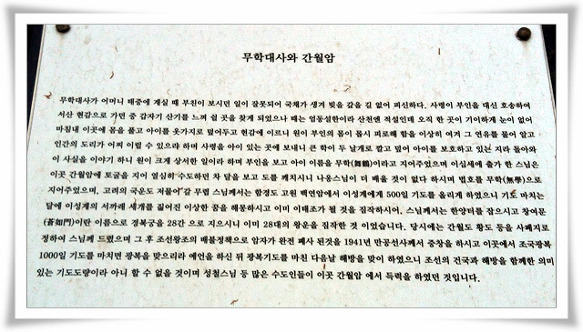 무학대사와 간월암
무학대사가 어머니 태중에 계실 때 부친이 보시던 일이 잘못되어 국채가 생겨 빚을 갚을 길 없어 피신하다. 사령이 부인을 대신 호송하여
서산 현감으로 가던 중 갑자기 산기를 느껴 쉴 곳을 찾게 되었으나 때는 엄동설한이라 산천엔 적설인데 오직 한 곳이 기이하게 눈이 없어
마침내 이곳에 몸을 풀고 아이를 옷가지로 덮어두고 현감에 이르니 원이 부인의 몸이 몹시 피로해 함을 이상히 여겨 그 연유를 물어 알고
인간의 도리가 어찌 이럴 수 있으랴 하며 사령을 아이 있는 곳에 보내니 큰 학이 두 날개로 깔고 덮어 아이를 보호하고 있는 지라 돌아와
이 사실을 이야기 하니 원이 크게 상서한 일이라 하며 부인을 보고 아이 이름을 무학(舞鶴)이라고 지어주었으며 이십세에 출가 한 스님은
이곳에 토굴을 지어 열심히 수도하던 차 달을 보고 도를 깨치시니 나옹스님이 더 배울 것이 없다 하시며 법호를 무학(無學)으로
지어주었으며, 고려의 국운도 저물어 갈 무렵 스님께서는 함경도 고원 백연암에서 이성계에게 500일 기도를 올리게 하였으니 기도 마치는
달에 이성계의 서까래 세개를 짊어진 이상한 꿈을 해몽하시고 이미 이태조가 될 것을 짐작하시어, 스님께서는 한양터를 잡으시고 창여문
(蒼如門)이란 이름으로 경복궁을 28간 으로 지으시니 이미 28대의 왕운을 짐작한 것 이었습니다. 당시에는 간월도 황도 등을 사패지로
정하여 스님께 드렸으며 그 후 조선왕조의 배불정책으로 암자가 완전 폐사 된것을 1941년 만공선사께서 중창을 하시고 이곳에서 조국광복
1000일 기도를 마치면 광복을 맞으리라 예언을 하신 뒤 광복기도를 마친 다음날 해방을 맞이 하였으니 조선의 건국과 해방을 함께한 의미
있는 기도도량이라 아니 할 수 없을 것이며 성철스님 등 많은 수도인들이 이곳 간월암 에서 득력을 하였던 것입니다.